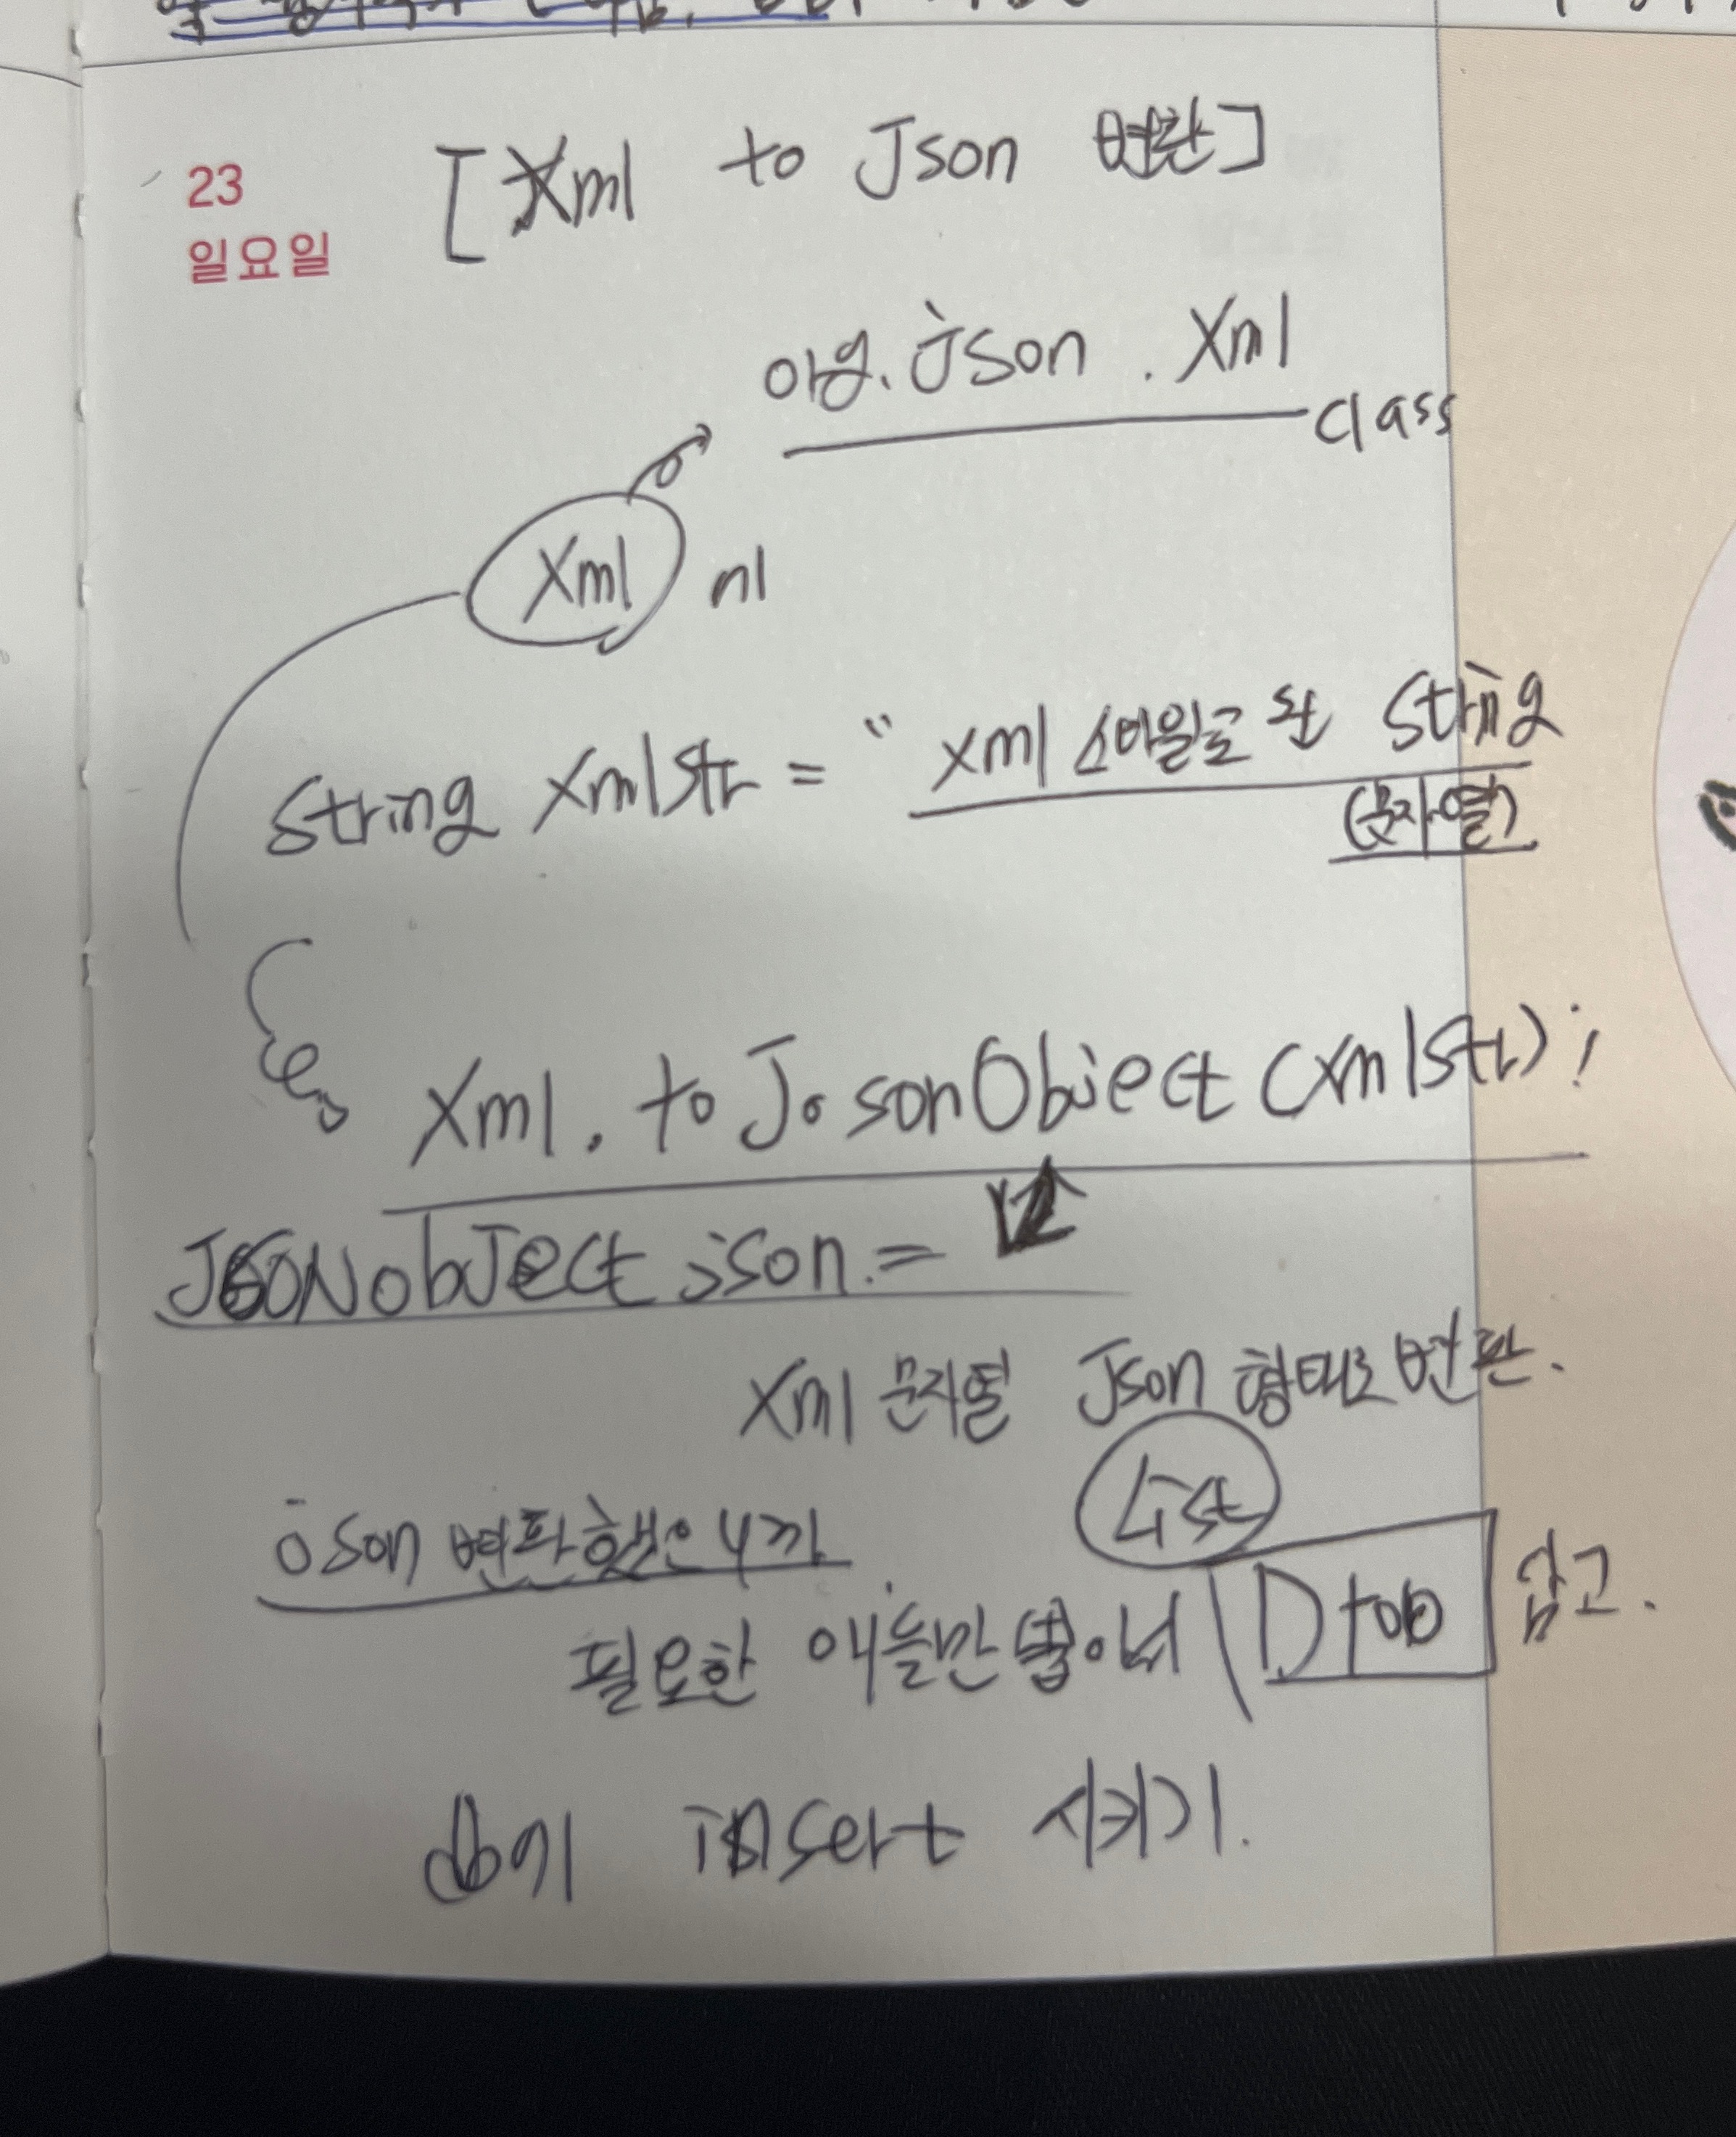 23
일요일
[Xml to Json 변환]
org.json.Xml
class
Xml
String xmlStr = " xml 스타일로 된 String
(문자열)
Xml.toJosonObject(xmlStr);
JSONobJect json =
Xml 문자열 Json 형태로 변환.
json 변환했으니까
List
필요한 애들만 뽑아서 Dto 담고.
db에 insert 시키기.